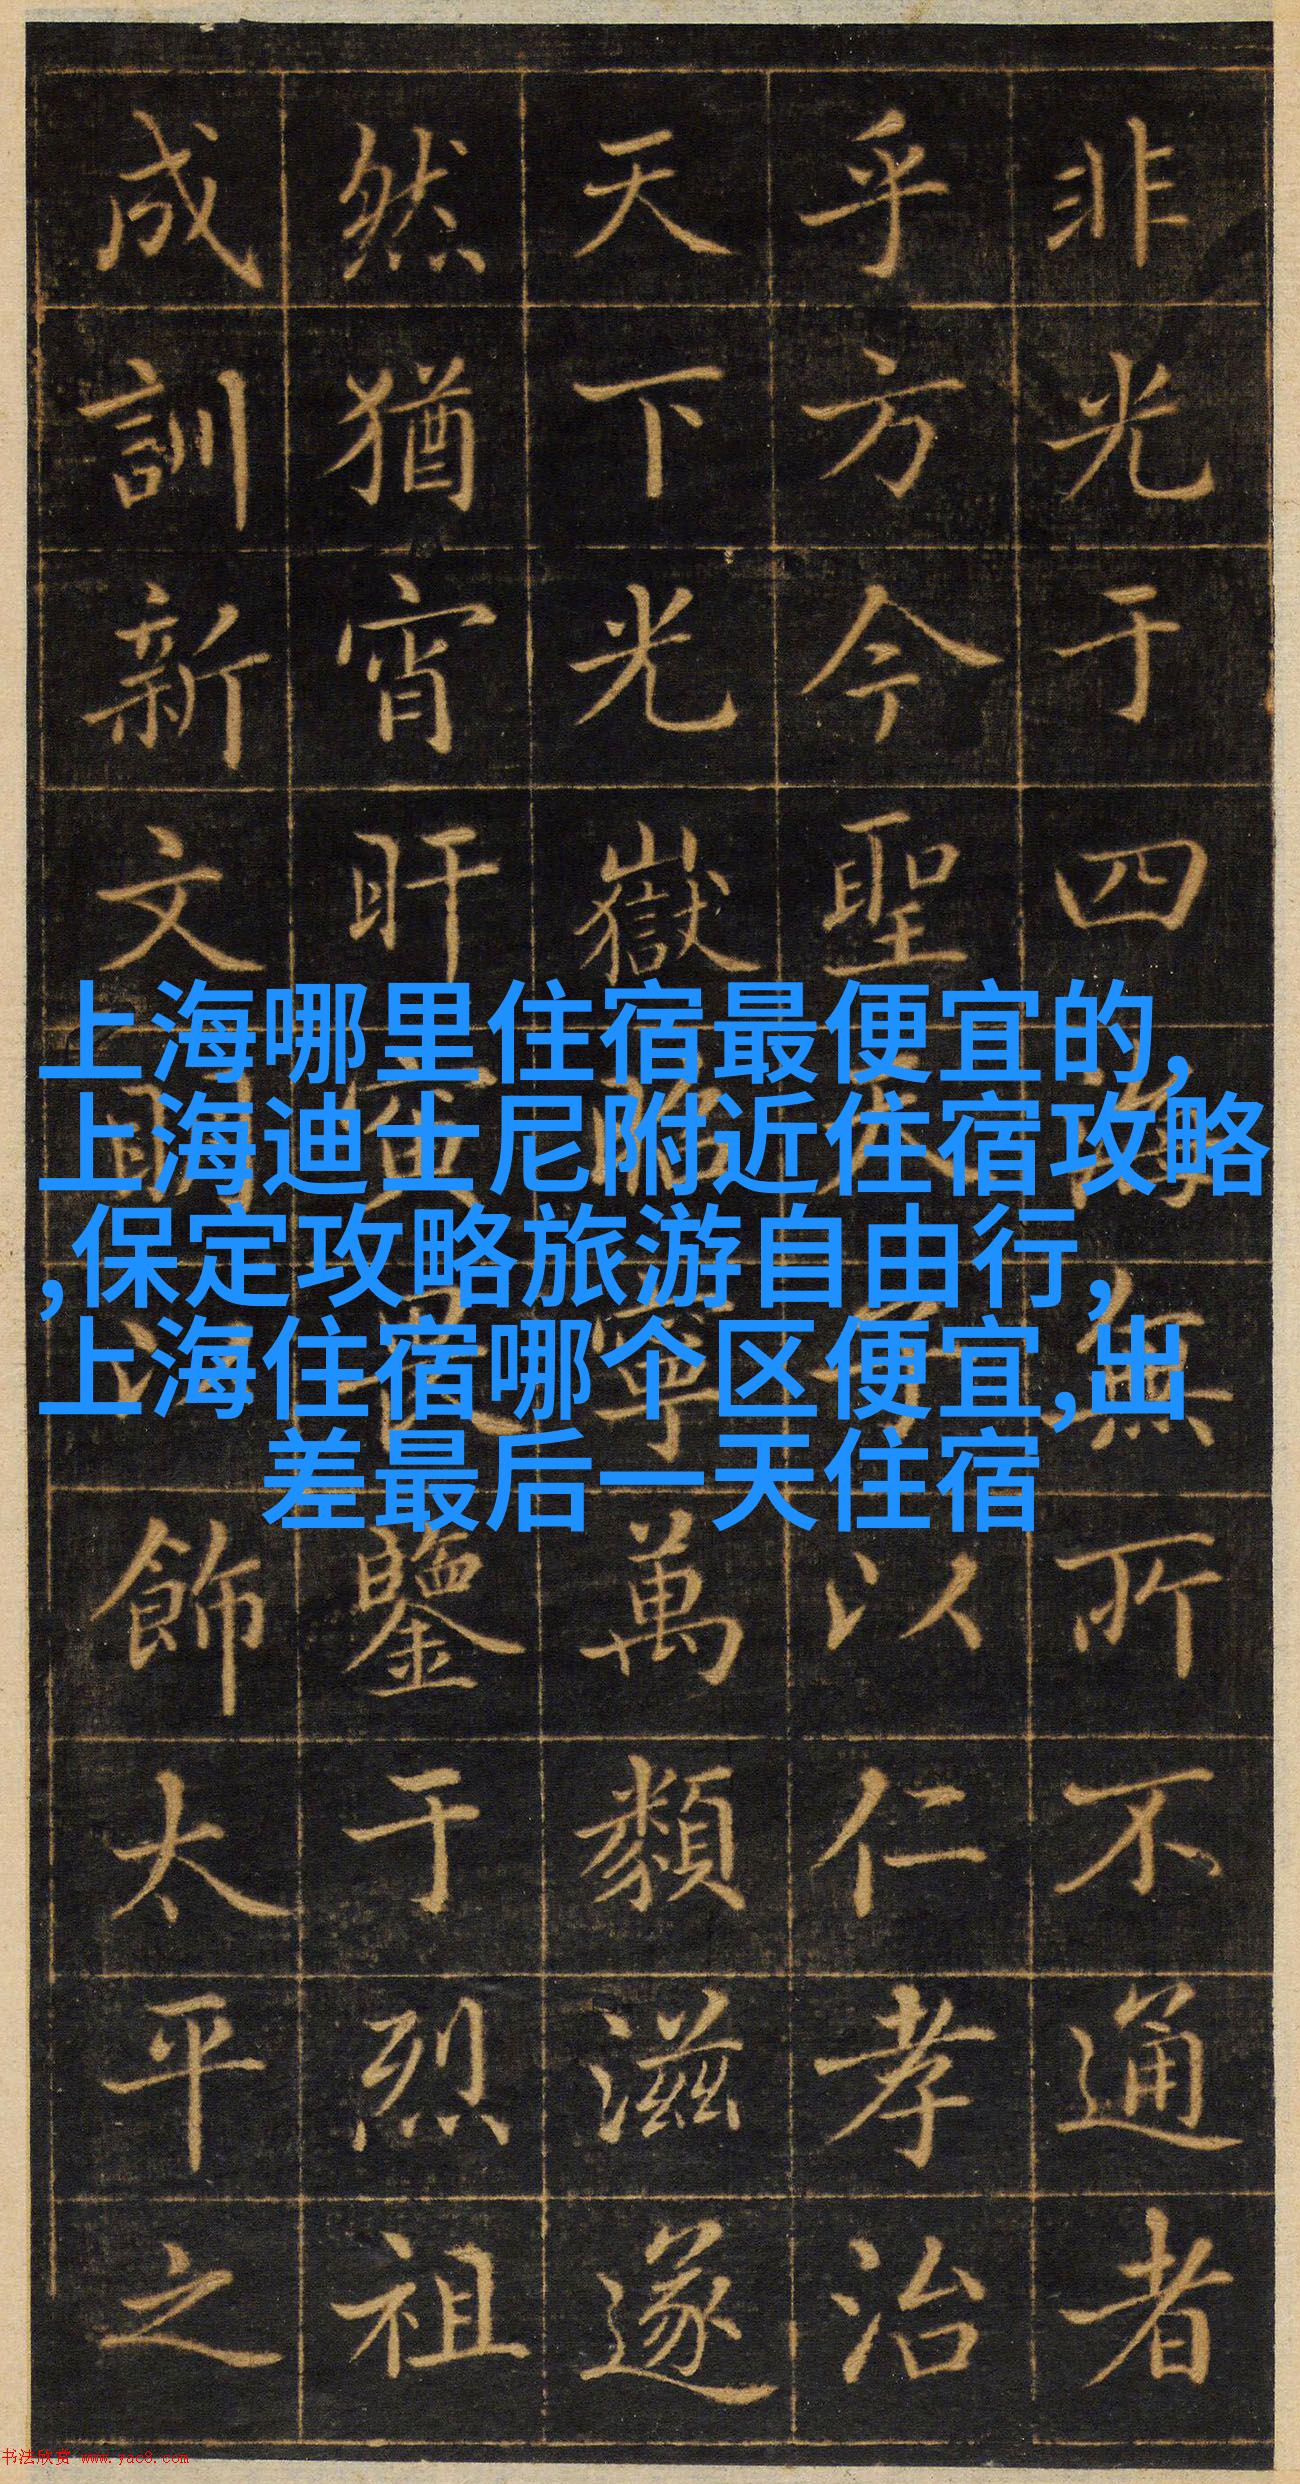 非光于四海無所不通者
乎方今聖天子以仁孝治
天下光嶽寧萬類滋遂
然猶宵旰寅鑒于烈祖
成訓新文明飾太平之
上海哪里住宿最便宜的,
上海迪士尼附近住宿攻略
,保定攻略旅游自由行,
上海住宿哪个区便宜,出
差最后一天住宿
书法欣赏 www.yac8.com